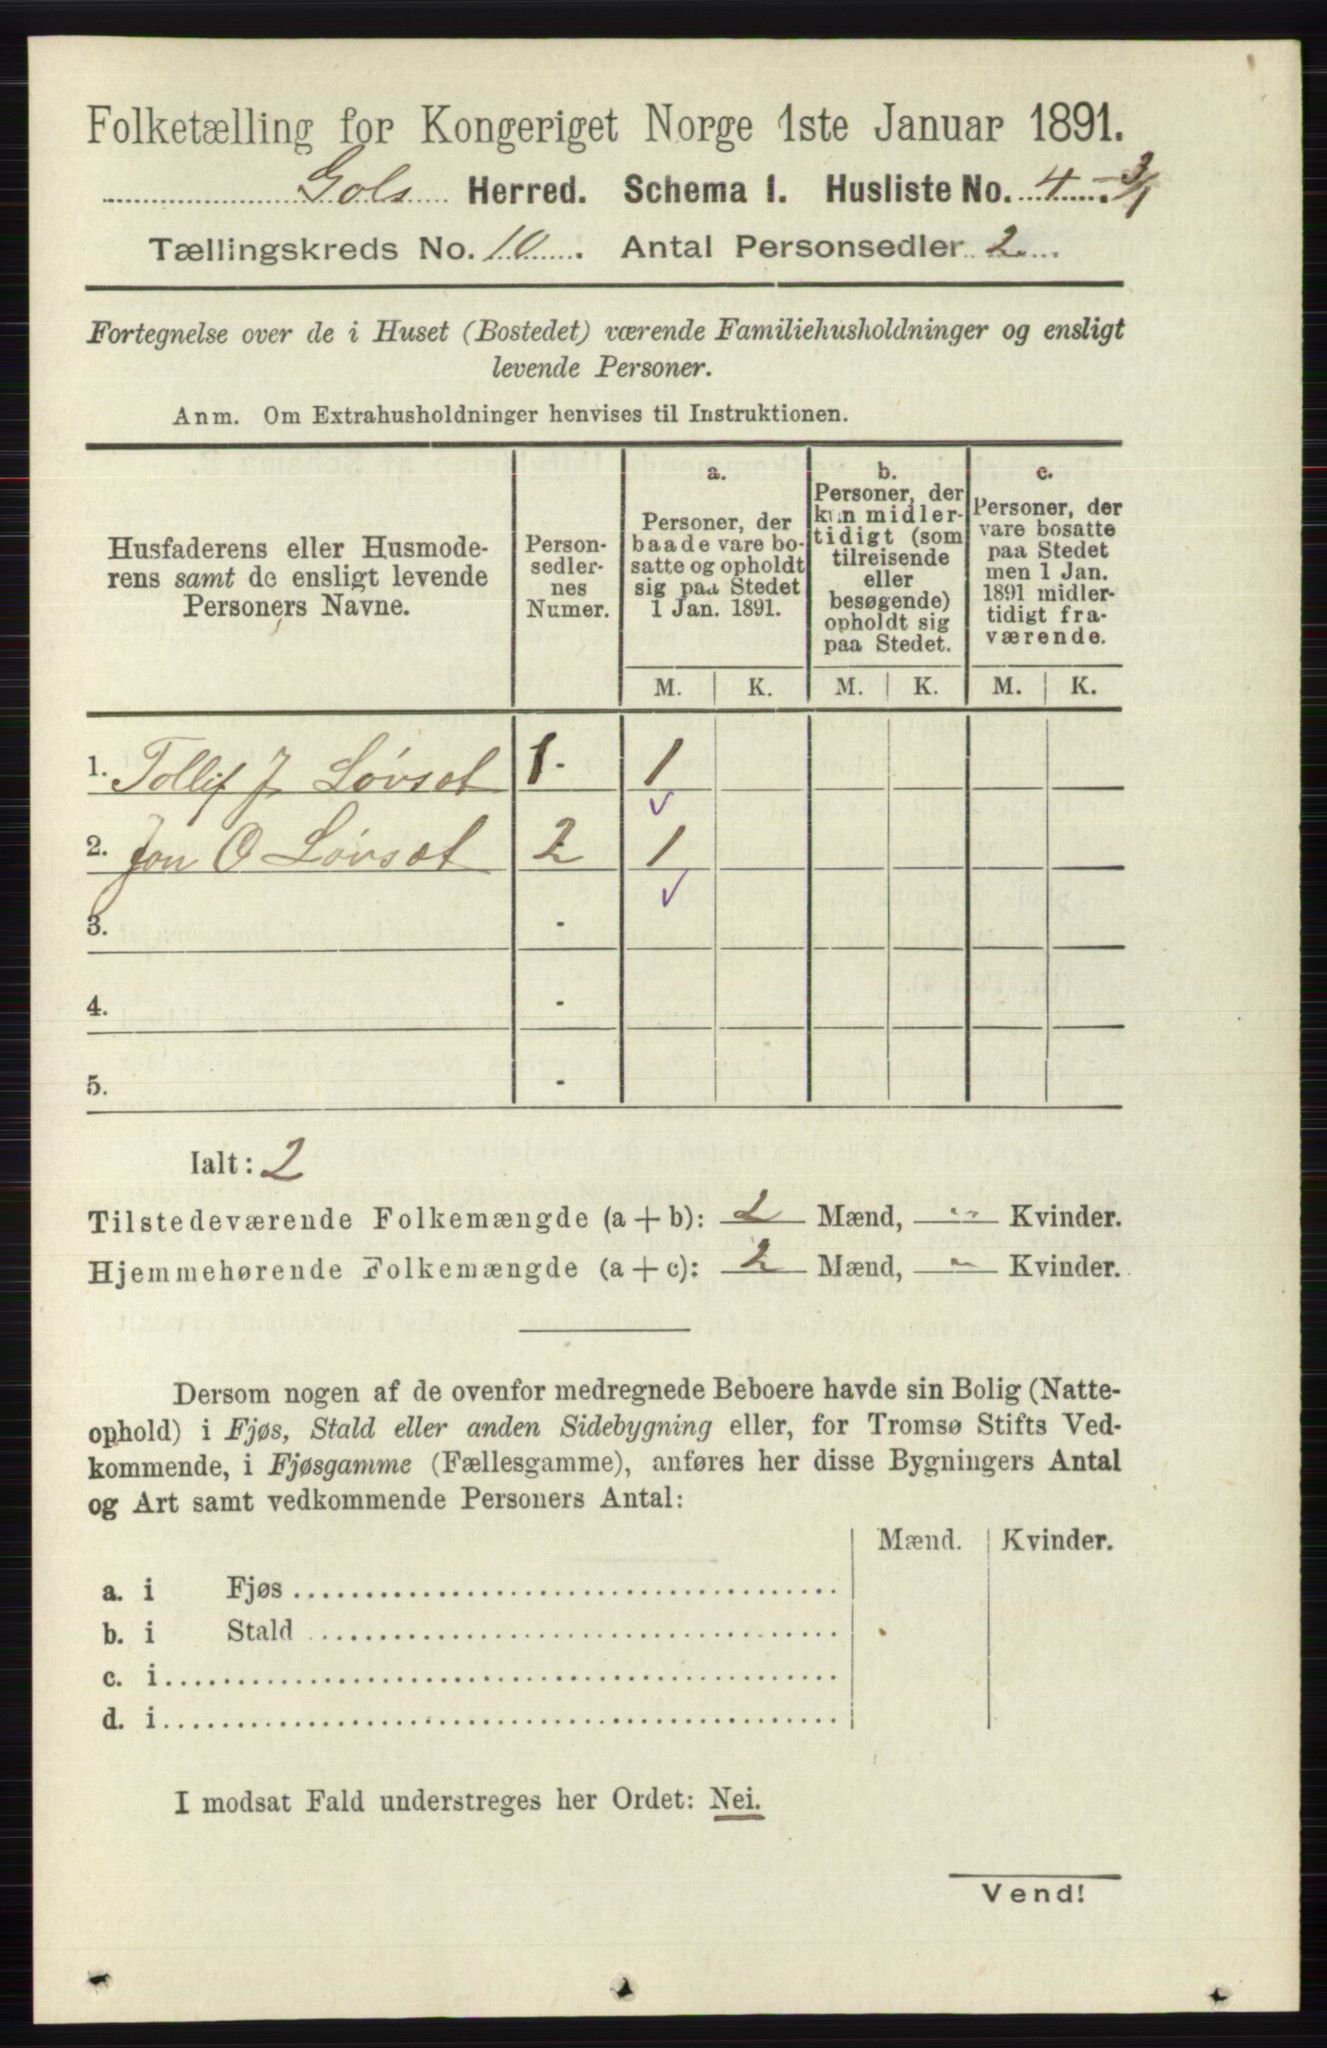 Folketælling for Kongeriget Norge 1ste Januar 1891.
Gols Herred. Schema 1. Husliste No. 4 - 3/1
Tællingskreds No. 10. Antal Personsedler 2
Fortegnelse over de i Huset (Bostedet) værende Familiehusholdninger og ensligt
levende Personer.
Anm. Om Extrahusholdninger henvises til Instruktionen.
Husfaderens eller Husmode-
rens samt de ensligt levende
Personers Navne.
Person-
sedler-
nes
Numer.
a.
Personer, der
baade vare bo-
satte og opholdt
sig paa Stedet
1 Jan. 1891.
b.
Personer, der
kun midler-
tidigt (som
tilreisende
eller
besøgende)
opholdt sig
paa Stedet.
c.
Personer, der
vare bosatte
paa Stedet
men 1 Jan.
1891 midler-
tidigt fra-
værende.
M. K. M. K. M. K.
1. Tollif J Løvset 1. 1
2. Jon O Løvset 2 1
3. -
4. -
5. -
Ialt: 2
Tilstedeværende Folkemængde (a + b): 2 Mænd, - Kvinder.
Hjemmehørende Folkemængde (a + c): 2 Mænd, - Kvinder.
Dersom nogen af de ovenfor medregnede Beboere havde sin Bolig (Natte-
ophold) i Fjøs, Stald eller anden Sidebygning eller, for Tromsø Stifts Ved-
kommende, i Fjøsgamme (Fællesgamme), anføres her disse Bygningers Antal
og Art samt vedkommende Personers Antal:
Mænd. Kvinder.
a. i Fjøs
b. i Stald
c. i
d. i
I modsat Fald understreges her Ordet: Nei.
Vend!